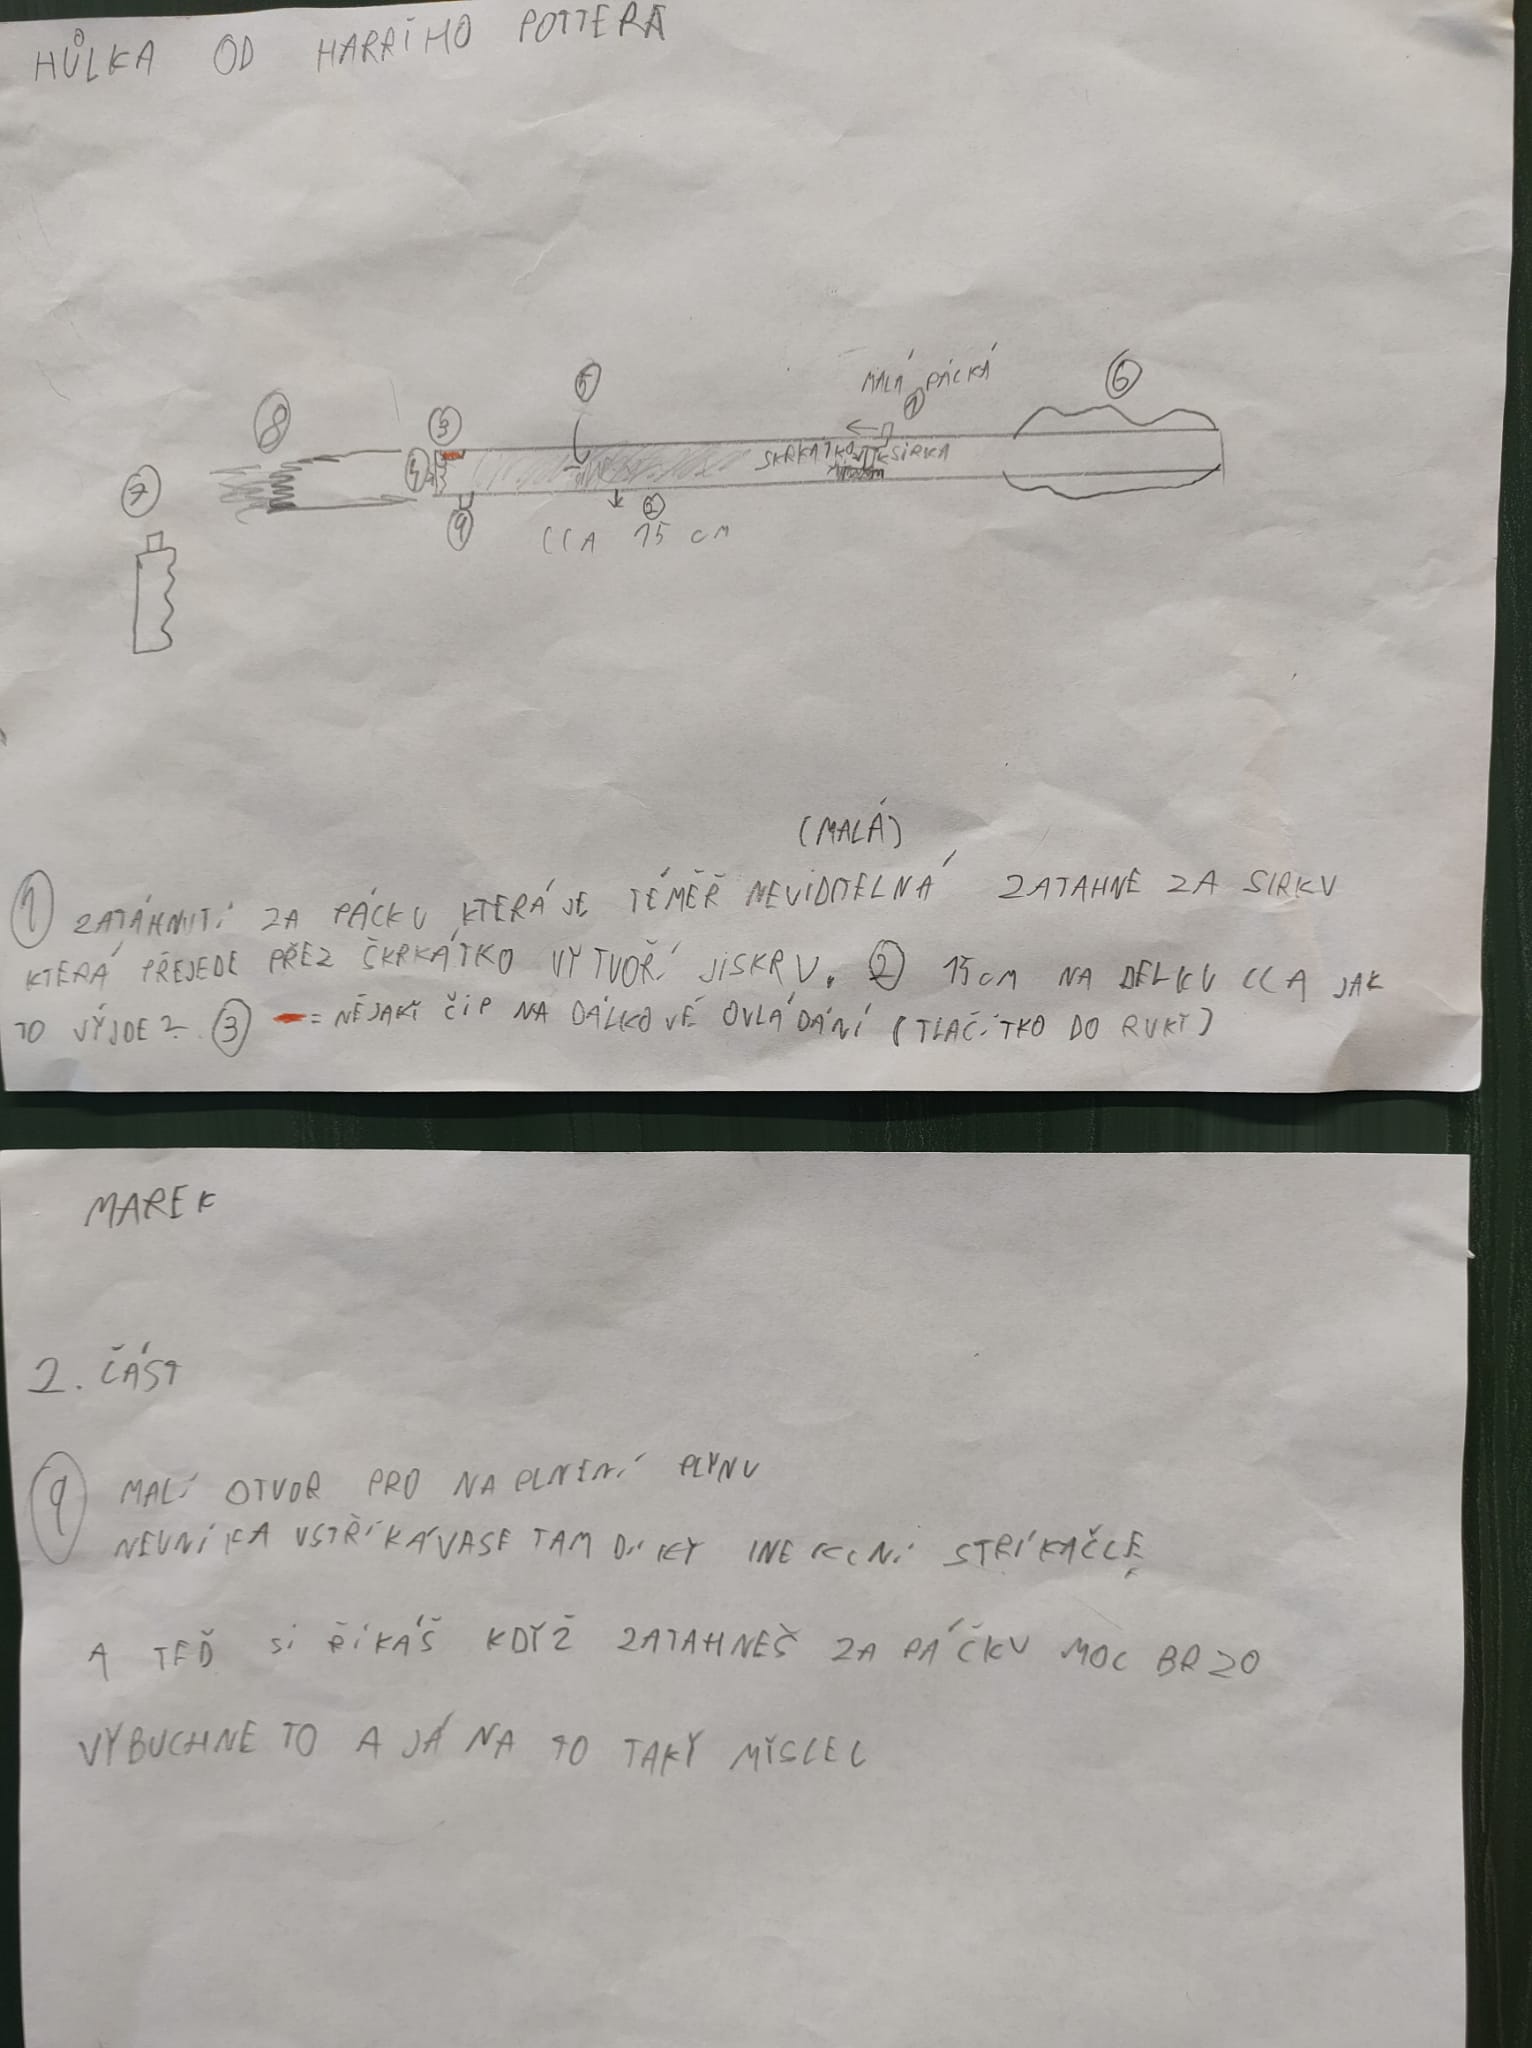 HŮLKA OD HARRÍHO POTTERA
MALÁ PÁCKÁ
1
6
5
3
8
4
7
ŠKRKÁTKO SÍRKA
9
2
CCA 15 CM
(MALÁ)
1 ZATÁHNUTÍ ZA PÁCKU KTERÁ JE TÉMĚŘ NEVIDITELNÁ ZATAHNE ZA SIRKU
KTERÁ PŘEJEDE PŘEZ ŠKRKÁTKO VYTVOŘÍ JISKRU. 2 15 CM NA DÉLKU CCA JAK
TO VÝJDE?. 3 = NĚJAKÝ ČIP NA DÁLKOVÉ OVLÁDÁNÍ (TLAČÍTKO DO RUKY)
MAREK
2. ČÁST
9 MALÍ OTVOR PRO NAPLNENÍ PLYNU
NEUNÍKA VSTŘÍKÁVASE TAM DÍKY INEKCNÍ STRÍKAČCE
A TEĎ SI ŘÍKÁŠ KDYŽ ZATAHNEŠ ZA PÁČKU MOC BRZO
VYBUCHNE TO A JÁ NA TO TAKY MYSLEL